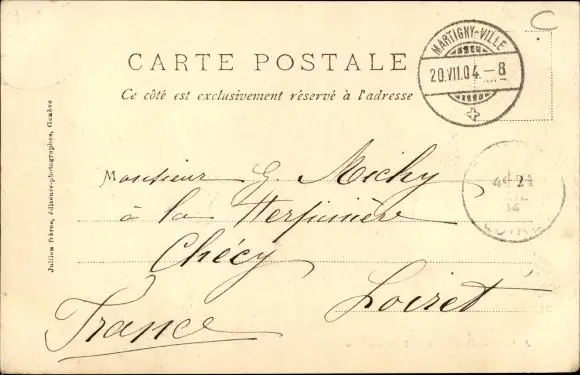 C
MARTIGNY-VILLE
20.VII.04.-8
CARTE POSTALE
Ce côté est exclusivement réservé à l'adresse
Jullien frères, éditeurs-photographes, Genève
Monsieur G. Michy
à la
Chécy
Loiret
France